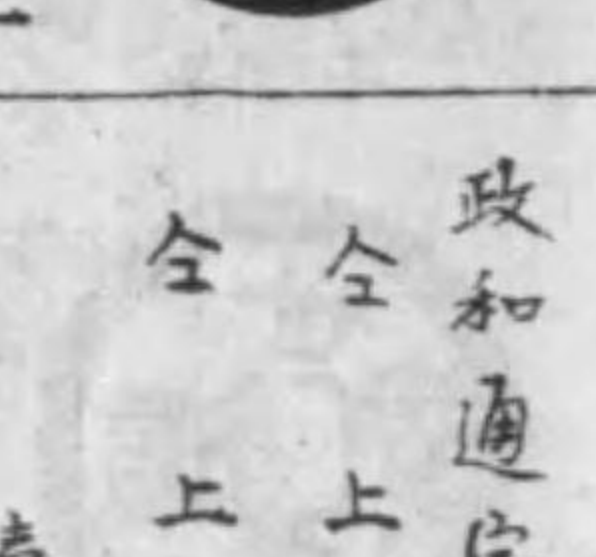 政和通宝
仝上
仝上